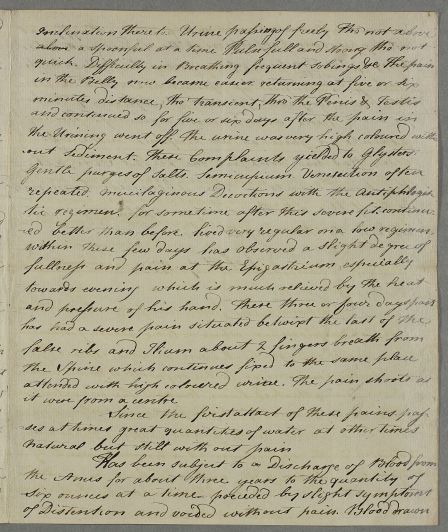 Inclination there to Urine passing of freely tho not above
above a spoonful at a time Pulse full and strong tho not
quick. Difficulty in Breathing frequent sobings &c The pain
in the Belly now became easier returning at five or six
minutes distance, tho transient, thro the Penis & Testis
and continued so for five or six days after the pain in
the Urining went off. The urine was very high coloured with
out Sediment. These Complaints yielded to Glysters
Gentle purges of Salts. Semicupium Venesection often
repeated. mucilaginous Decoctions with the Antiphlogis
tic regimen. for sometime after this severe fit continu
ed better than before. lived very regular on a low regimen
within these few days has observed a slight degree of
fullness and pain at the Epigastrium, especially
towards evening which is much relieved by the heat
and pressure of his hand. These three or four days past
has had a severe pain situated betwixt the last of the
false ribs and Ilium about 2 fingers breath from
the Spine which continues fixed to the same place
attended with high coloured urine. The pain shoots as
it were from a centre.
Since the first attact of these pains pas
ses at times great quantities of water at other times
natural but still without pain
Has been subject to a Discharge of Blood from
the Anus for about three years to the quantity of
six ounces at a time preceded by slight symptoms
of Distention and voided without pain. Blood drawn